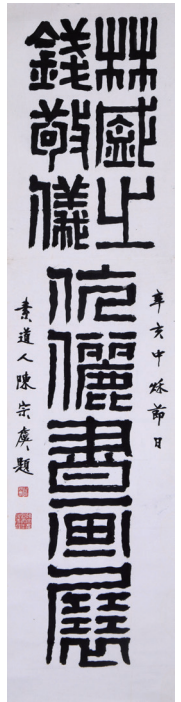 林之
錢敬儀
伉儷書畫展
辛亥中秋節日
素道人陳宗虞題